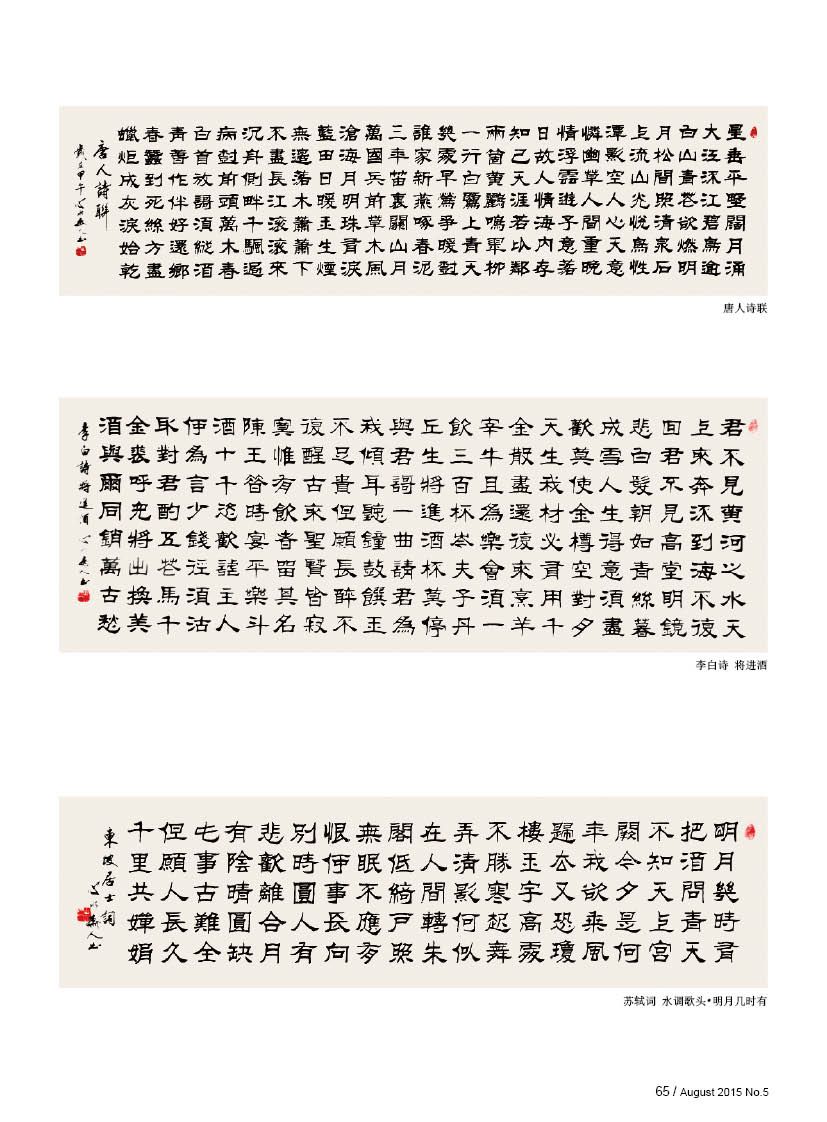 星垂平野闊月涌
大江流江碧鳥逾
白山青花欲燃明
月松間照清泉石
上流山光悦鳥性
潭影空人心天意
憐幽草人間重晚
情浮雲遊子意落
日故人情海内存
知己天涯若比鄰
兩箇黄鸝鳴翠柳
一行白鷺上青天
幾處早鶯爭暖樹
誰家新燕啄春泥
三年笛裏關山月
萬國兵前草木風
滄海月明珠有淚
藍田日暖玉生煙
無邊落木蕭蕭下
不盡長江滾滾來
沉舟側畔千颿過
病樹前頭萬木春
白首放歌須縱酒
青春作伴好還鄉
春蠶到死絲方盡
蠟炬成灰淚始乾
唐人詩聯
唐人诗联
君不見黄河之水天
上來奔流到海不復
回君不見高堂明鏡
悲白髮朝如青絲暮
成雪人生得意須盡
歡莫使金樽空對月
天生我材必有用千
金散盡還復來烹羊
宰牛且為樂會須一
飲三百杯岑夫子丹
丘生將進酒杯莫停
與君謌一曲請君為
我傾耳聽鐘鼓饌玉
不足貴但願長醉不
復醒古來聖賢皆寂
寞惟有飲者留其名
陳王昔時宴平樂斗
酒十千恣歡謔主人
伊為言少錢徑須沽
取對君酌五花馬千
金裘呼兒將出換美
酒與爾同銷萬古愁
李白詩將進酒
李白诗 将进酒
明月幾時有
把酒問青天
不知天上宮
闕今夕是何
年我欲乘風
歸去又恐瓊
樓玉宇高處
不勝寒起舞
弄清影何似
在人間轉朱
閣低綺戶照
無眠不應有
恨何事長向
別時圓人有
悲歡離合月
有陰晴圓缺
此事古難全
但願人長久
千里共嬋娟
東坡居士詞
苏轼词 水调歌头•明月几时有
65 / August 2015 No.5